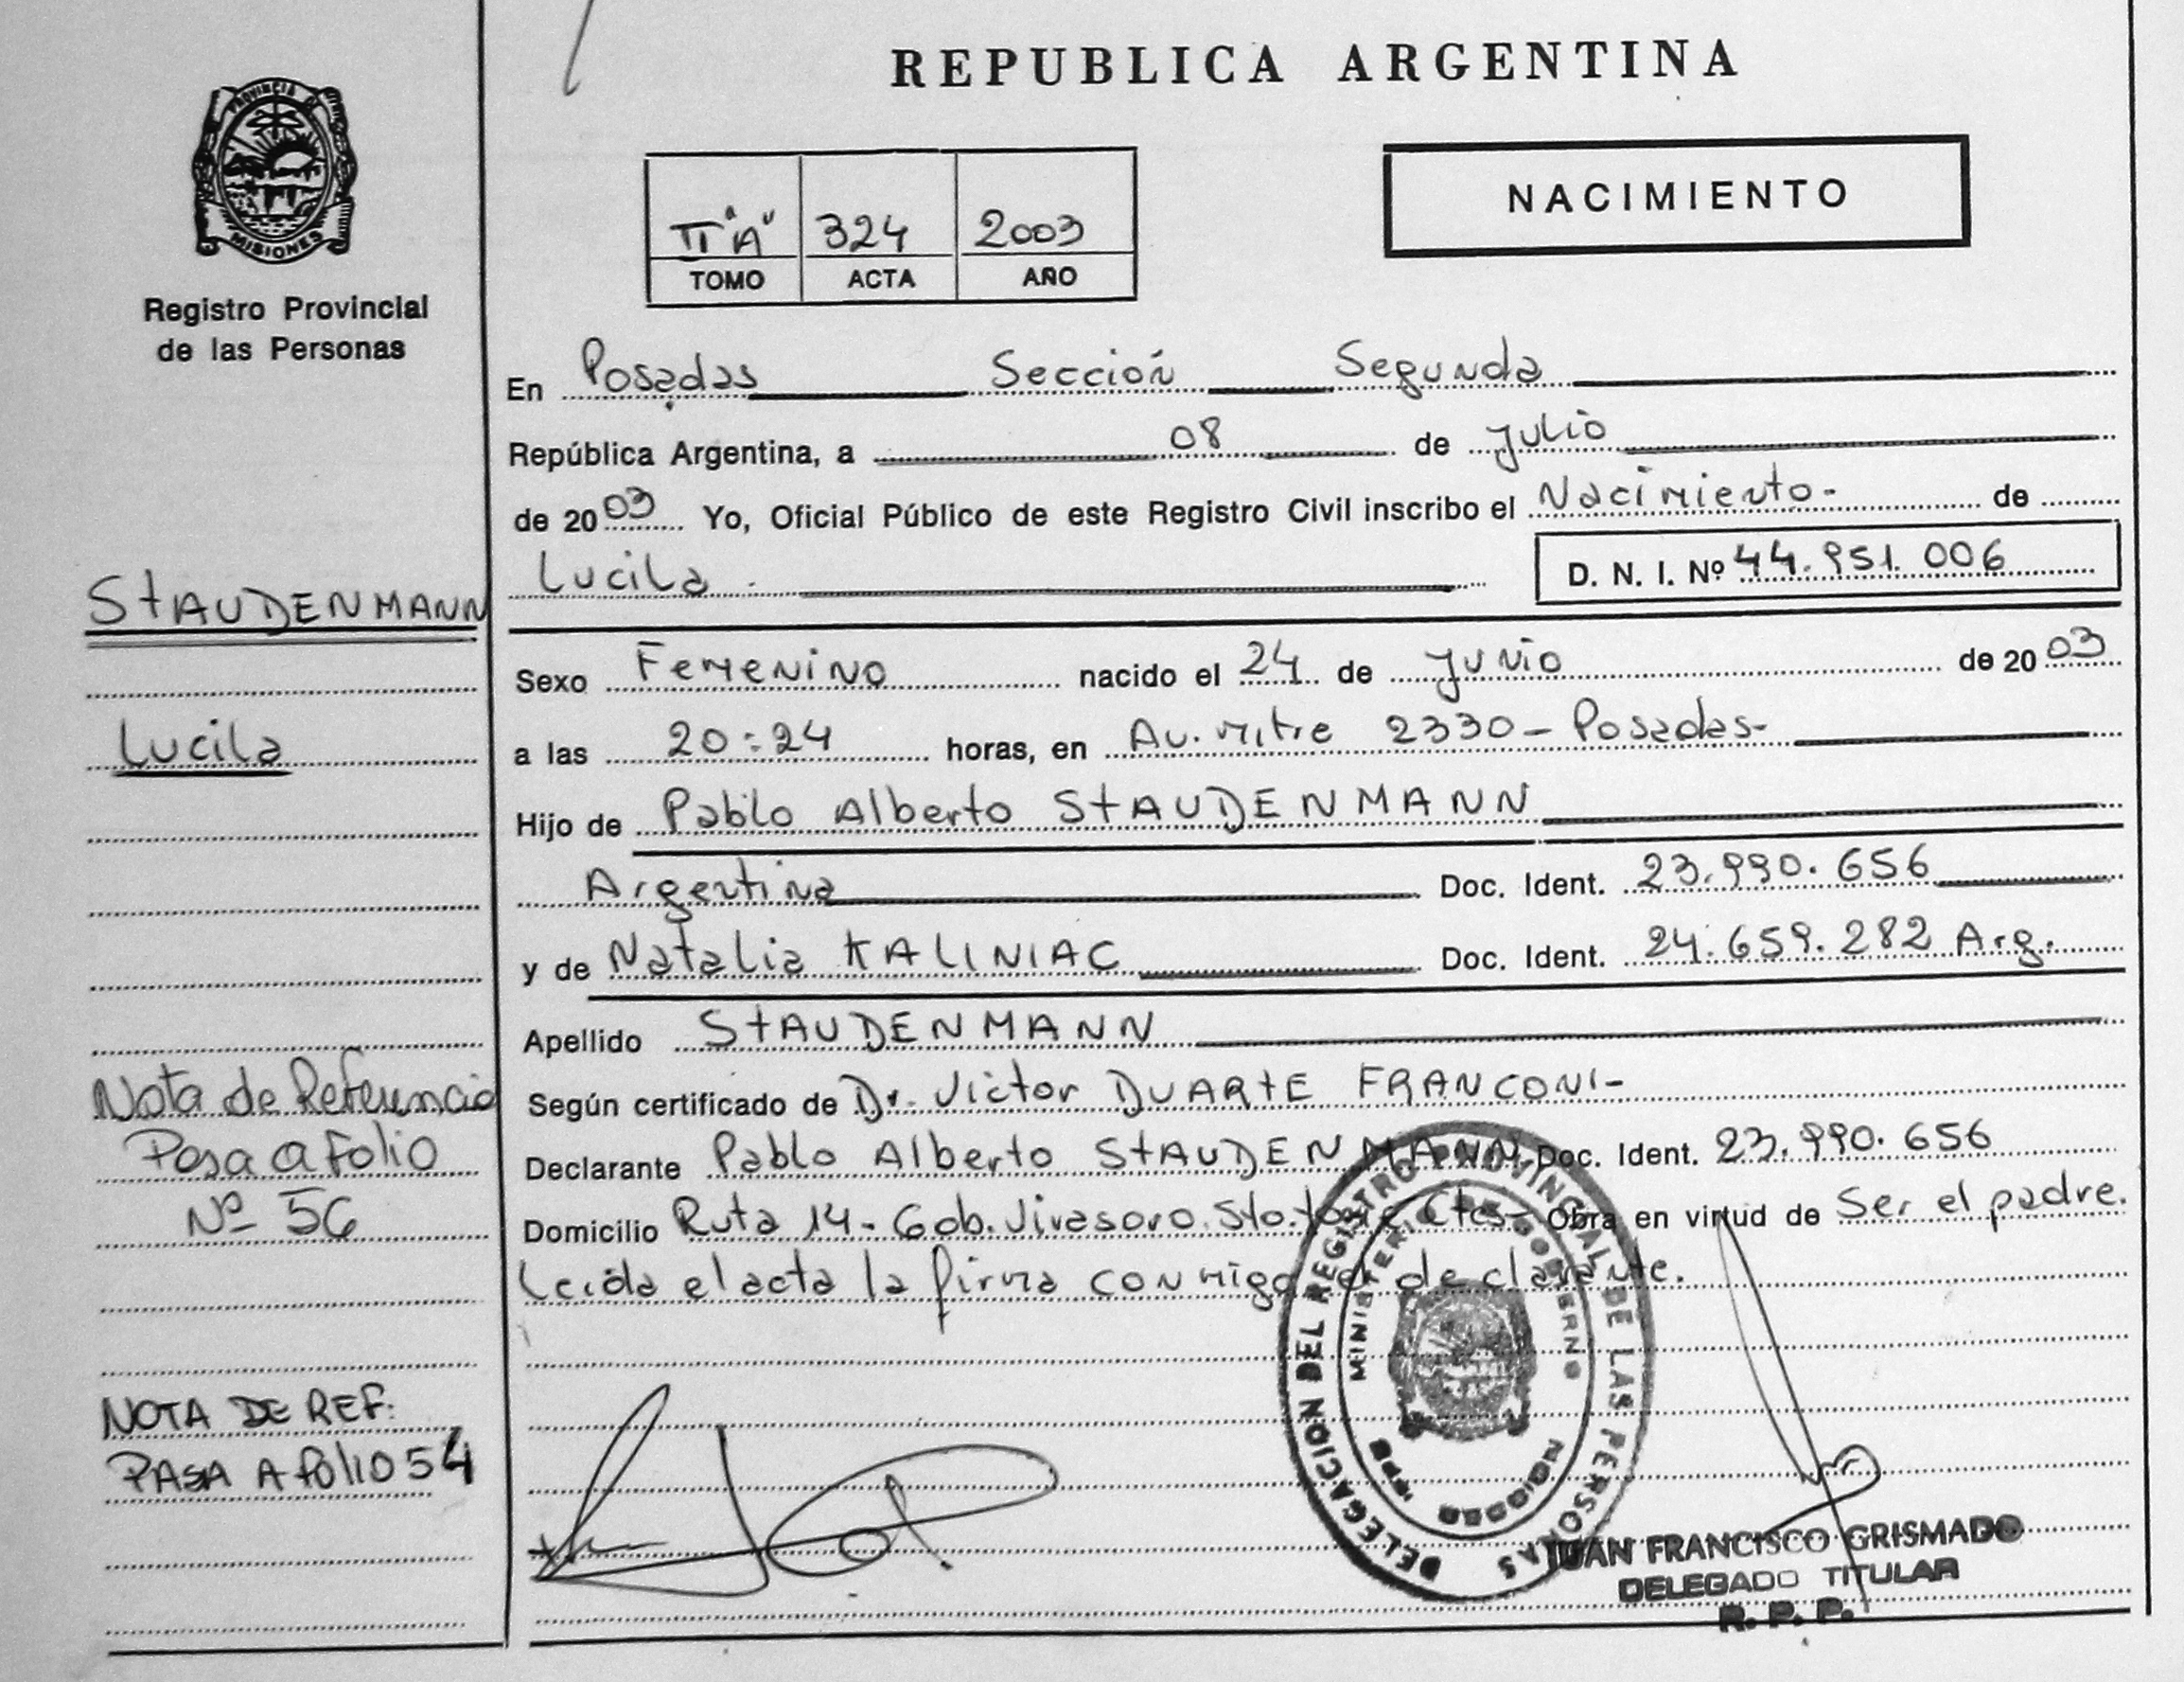 REPUBLICA ARGENTINA
PROVINCIA DE
MISIONES
Registro Provincial
de las Personas
NACIMIENTO
II "A" 324 2003
TOMO ACTA AÑO
En Posadas Sección Segunda
República Argentina, a 08 de Julio
de 2003 Yo, Oficial Público de este Registro Civil inscribo el Nacimiento - de
Lucila . D. N. I. Nº 44.951.006
STAUDENMANN
Lucila
Sexo Femenino nacido el 24 de Junio de 2003
a las 20:24 horas, en Av. Mitre 2330 - Posadas-
Hijo de Pablo Alberto STAUDENMANN
Argentina Doc. Ident. 23.990.656
y de Natalia KALINIAC Doc. Ident. 24.659.282 Arg.
Apellido STAUDENMANN
Según certificado de Dr. Victor DUARTE FRANCONI-
Declarante Pablo Alberto STAUDENMANN Doc. Ident. 23.990.656
Domicilio Ruta 14 - Gob. Virasoro. Sto. Tomé Ctes- Obra en virtud de Ser el padre.
Leída el acta la firma conmigo el declarante.
Nota de Referencia
Pasa a folio
Nº 56
NOTA DE REF:
PASA A folio 54
DELEGACION DEL REGISTRO PROVINCIAL DE LAS PERSONAS
MINISTERIO DE GOBIERNO
JUAN FRANCISCO GRISMADO
DELEGADO TITULAR
R. P. P.